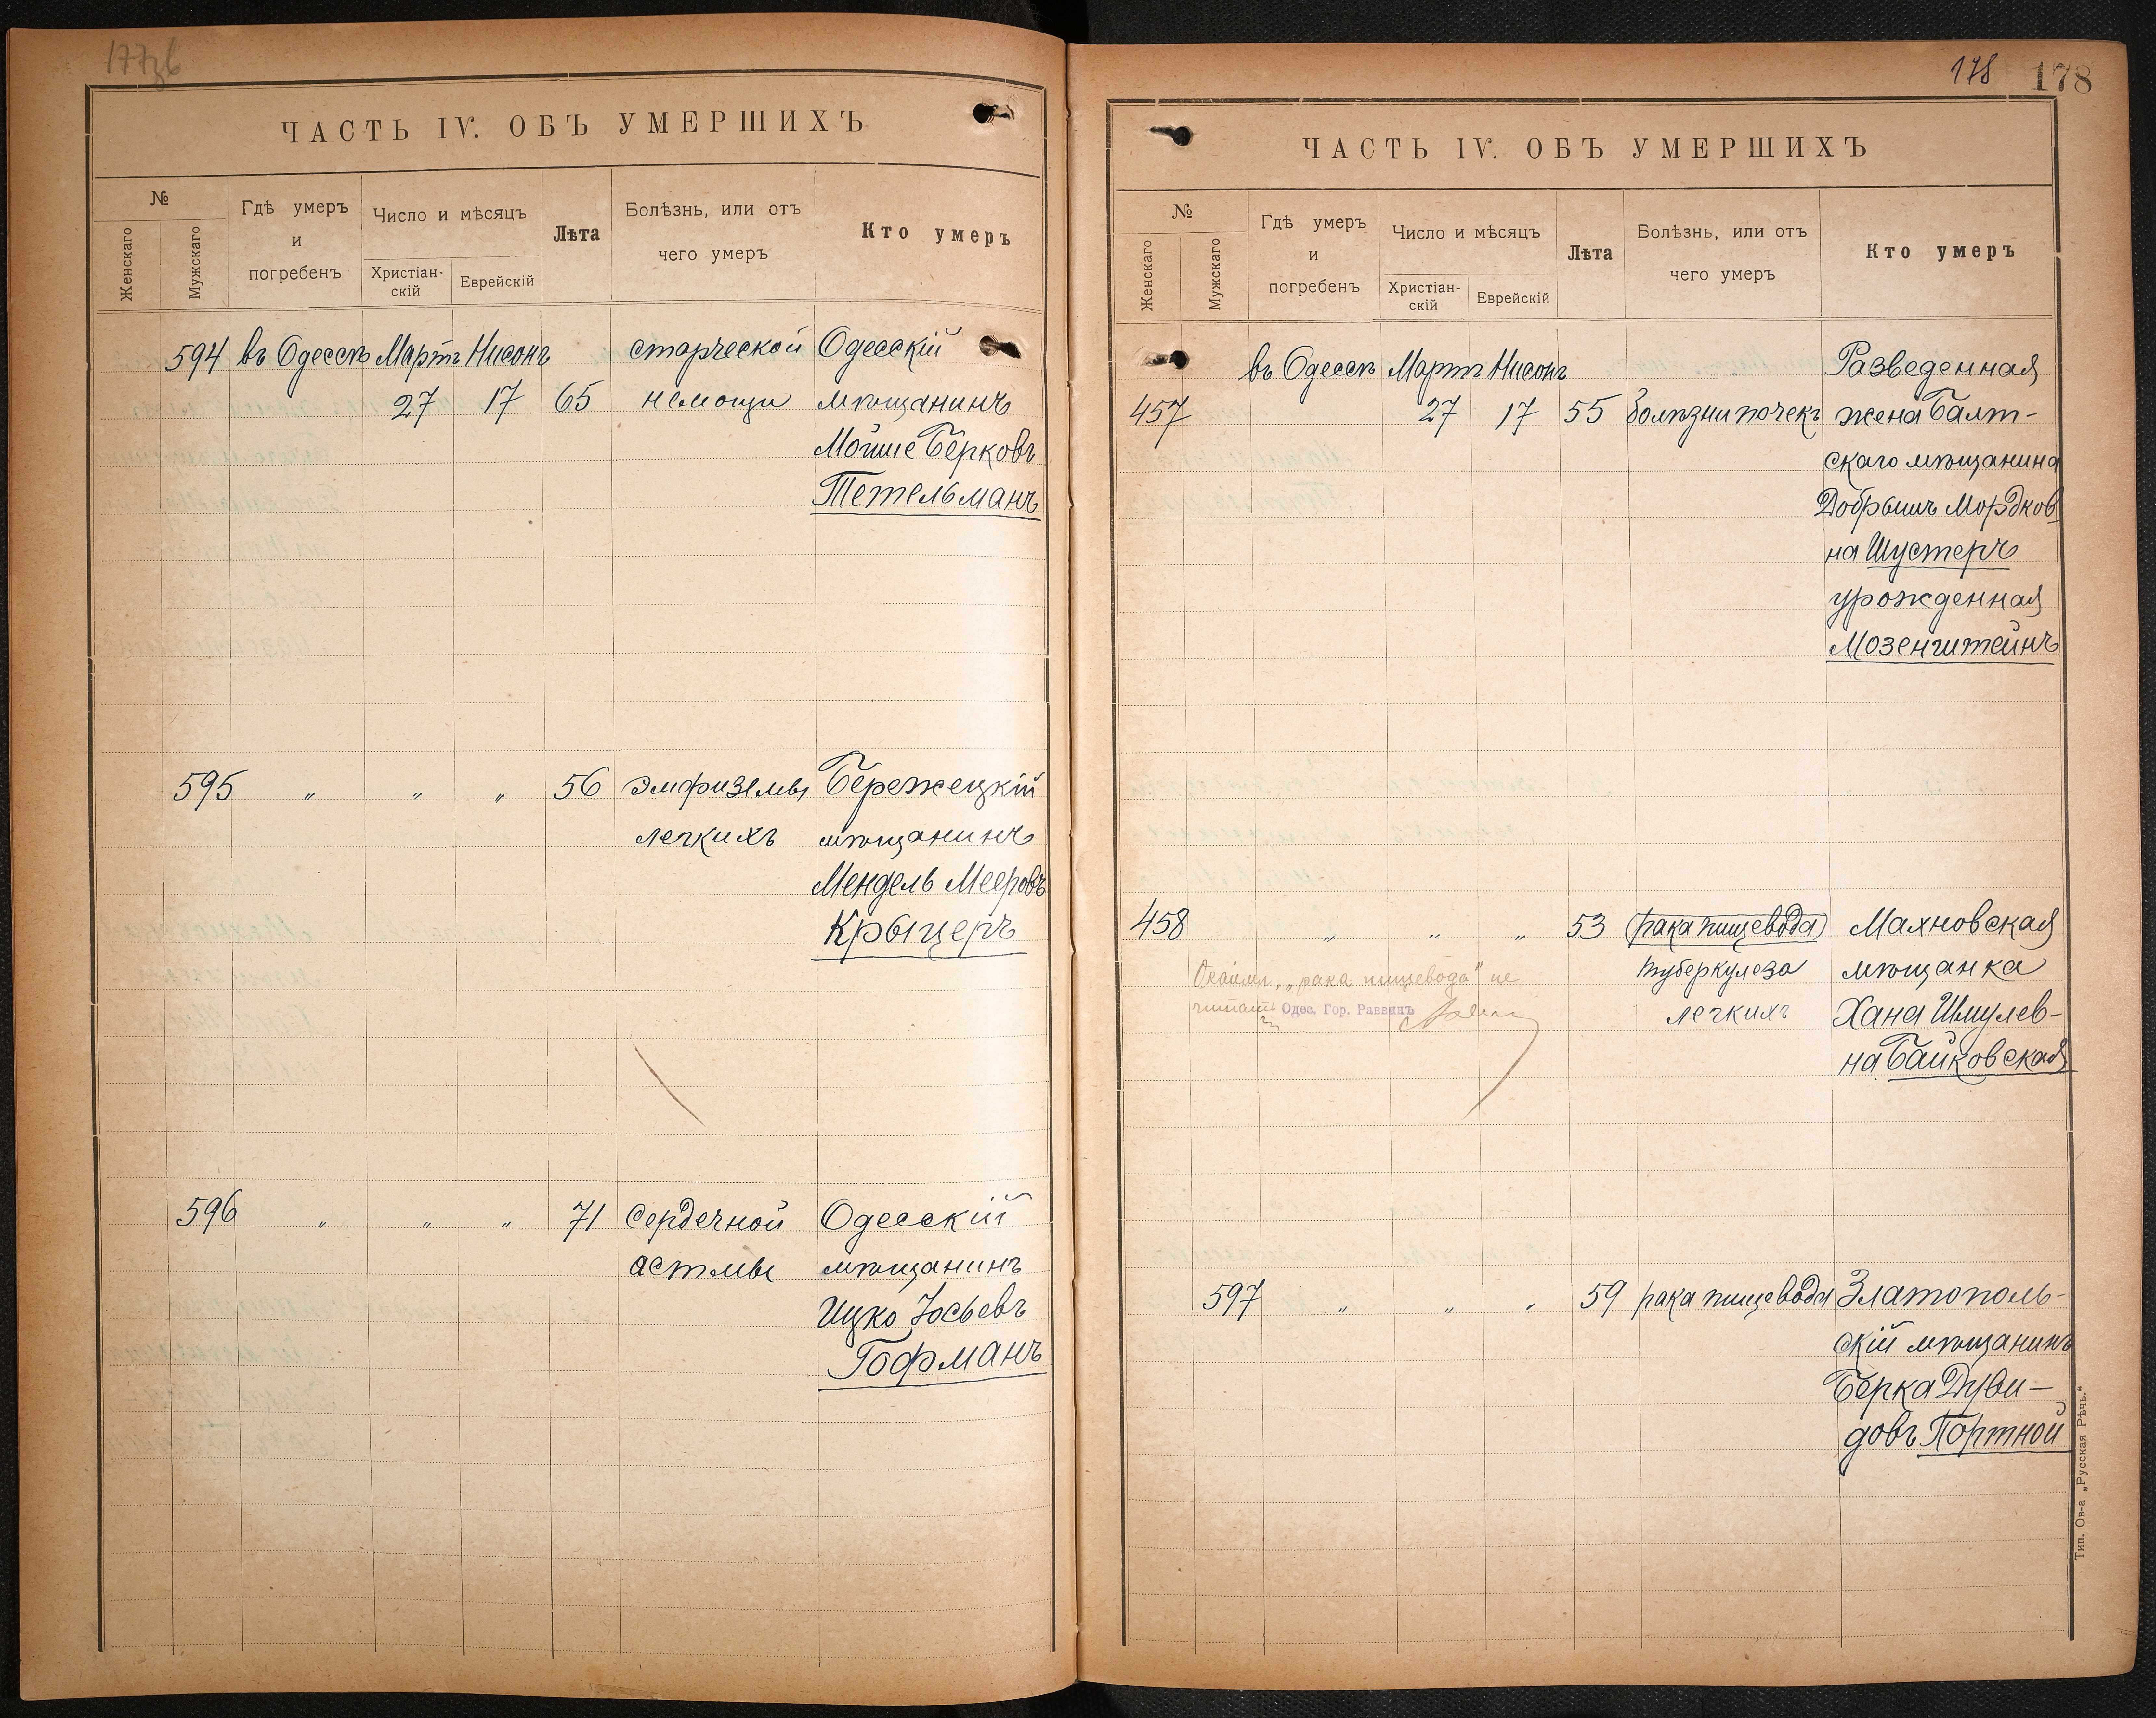 177об
ЧАСТЬ IV. ОБЪ УМЕРШИХЪ
№
Женскаго
Мужскаго
Гдѣ умеръ и погребенъ
Число и мѣсяцъ
Христіан-скій
Еврейскій
Лѣта
Болѣзнь, или отъ чего умеръ
Кто умеръ
594 въ Одессѣ Мартъ Нисонъ старческой Одесскій
27 17 65 немощи мѣщанинъ
Мойше Берковъ
Тетельманъ
595 " " " 56 эмфиземы Бережецкій
легкихъ мѣщанинъ
Мендель Мееровъ
Крыцеръ
596 " " " 71 сердечной Одесскій
астмы мѣщанинъ
Ицко Іосьевъ
Гофманъ
178 178
ЧАСТЬ IV. ОБЪ УМЕРШИХЪ
№
Женскаго
Мужскаго
Гдѣ умеръ и погребенъ
Число и мѣсяцъ
Христіан-скій
Еврейскій
Лѣта
Болѣзнь, или отъ чего умеръ
Кто умеръ
въ Одессѣ Мартъ Нисонъ Разведенная
457 27 17 55 болѣзни почекъ жена Балт-
скаго мѣщанина
Добрышъ Мордков
на Шустеръ
урожденная
Мозенштейнъ
458 " " " 53 (рака пищевода) Махновская
туберкулеза мѣщанка
легкихъ Хана Шмулев-
на Байковская
"рака пищевода" не
читать Одес. Гор. Раввинъ
597 " " " 59 рака пищевода Златополь-
скій мѣщанинъ
Берка Дуви-
довъ Портной
Тип. Ов-а „Русская Рѣчь."